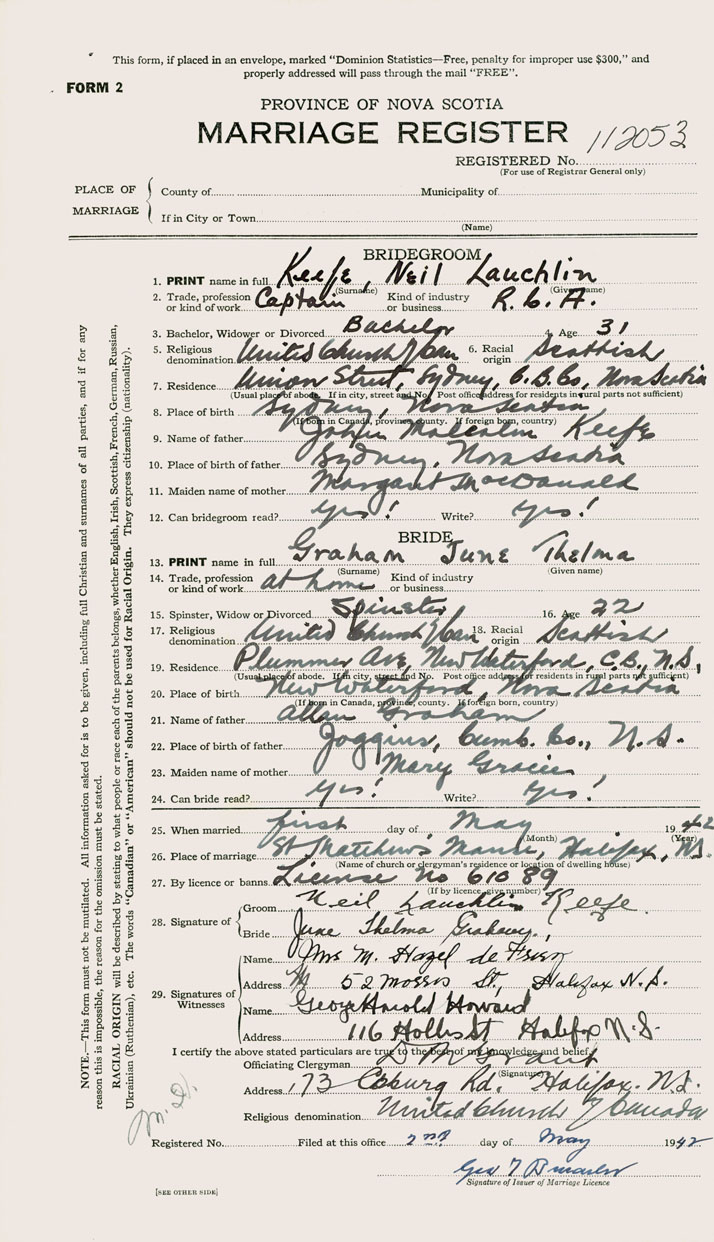 This form, if placed in an envelope, marked "Dominion Statistics—Free, penalty for improper use $300," and
properly addressed will pass through the mail "FREE".
FORM 2
PROVINCE OF NOVA SCOTIA
MARRIAGE REGISTER 112053
REGISTERED No.
(For use of Registrar General only)
PLACE OF MARRIAGE
County of Municipality of
If in City or Town
(Name)
BRIDEGROOM
1. PRINT name in full Keefe, Neil Lauchlin
(Surname) (Given name)
2. Trade, profession or kind of work Captain Kind of industry or business R.C.A.
3. Bachelor, Widower or Divorced Bachelor 4. Age 31
5. Religious denomination United Church of Can 6. Racial origin Scottish
7. Residence Union Street, Sydney, C.B.Co, Nova Scotia
(Usual place of abode. If in city, street and No. Post office address for residents in rural parts not sufficient)
8. Place of birth Sydney, Nova Scotia
(If born in Canada, province, county. If foreign born, country)
9. Name of father John Malcolm Keefe
10. Place of birth of father Sydney, Nova Scotia
11. Maiden name of mother Margaret MacDonald
12. Can bridegroom read? Yes! Write? Yes!
BRIDE
13. PRINT name in full Graham June Thelma
(Surname) (Given name)
14. Trade, profession or kind of work at home Kind of industry or business
15. Spinster, Widow or Divorced Spinster 16. Age 22
17. Religious denomination United Church of Can 18. Racial origin Scottish
19. Residence Plummer Ave, New Waterford, C.B., N.S,
(Usual place of abode. If in city, street and No. Post office address for residents in rural parts not sufficient)
20. Place of birth New Waterford, Nova Scotia
(If born in Canada, province, county. If foreign born, country)
21. Name of father Allan Graham
22. Place of birth of father Joggins, Cumb. Co., N.S.
23. Maiden name of mother Mary Gracie
24. Can bride read? Yes! Write? Yes!
25. When married first day of May 1942
(Month) (Year)
26. Place of marriage St Matthews Manse, Halifax, N.S.
(Name of church or clergyman's residence or location of dwelling house)
27. By licence or banns License no 61089
(If by licence, give number)
28. Signature of
Groom Neil Lauchlin Keefe
Bride June Thelma Graham
29. Signatures of Witnesses
Name Mrs M. Hazel de
Address 52 Morris St., Halifax N.S.
Name George Harold Howard
Address 116 Hollis St Halifax N.S.
I certify the above stated particulars are true to the best of my knowledge and belief.
Officiating Clergyman D M Grant
(Signature)
Address 173 Coburg Rd. Halifax. N.S.
Religious denomination United Church of Canada
Registered No. Filed at this office 2nd day of May 1942
Geo
Signature of Issuer of Marriage Licence
[SEE OTHER SIDE]
NOTE.—This form must not be mutilated. All information asked for is to be given, including full Christian and surnames of all parties, and if for any
reason this is impossible, the reason for the omission must be stated.
RACIAL ORIGIN will be described by stating to what people or race each of the parents belongs, whether English, Irish, Scottish, French, German, Russian,
Ukrainian (Ruthenian), etc. The words "Canadian" or "American" should not be used for Racial Origin. They express citizenship (nationality).